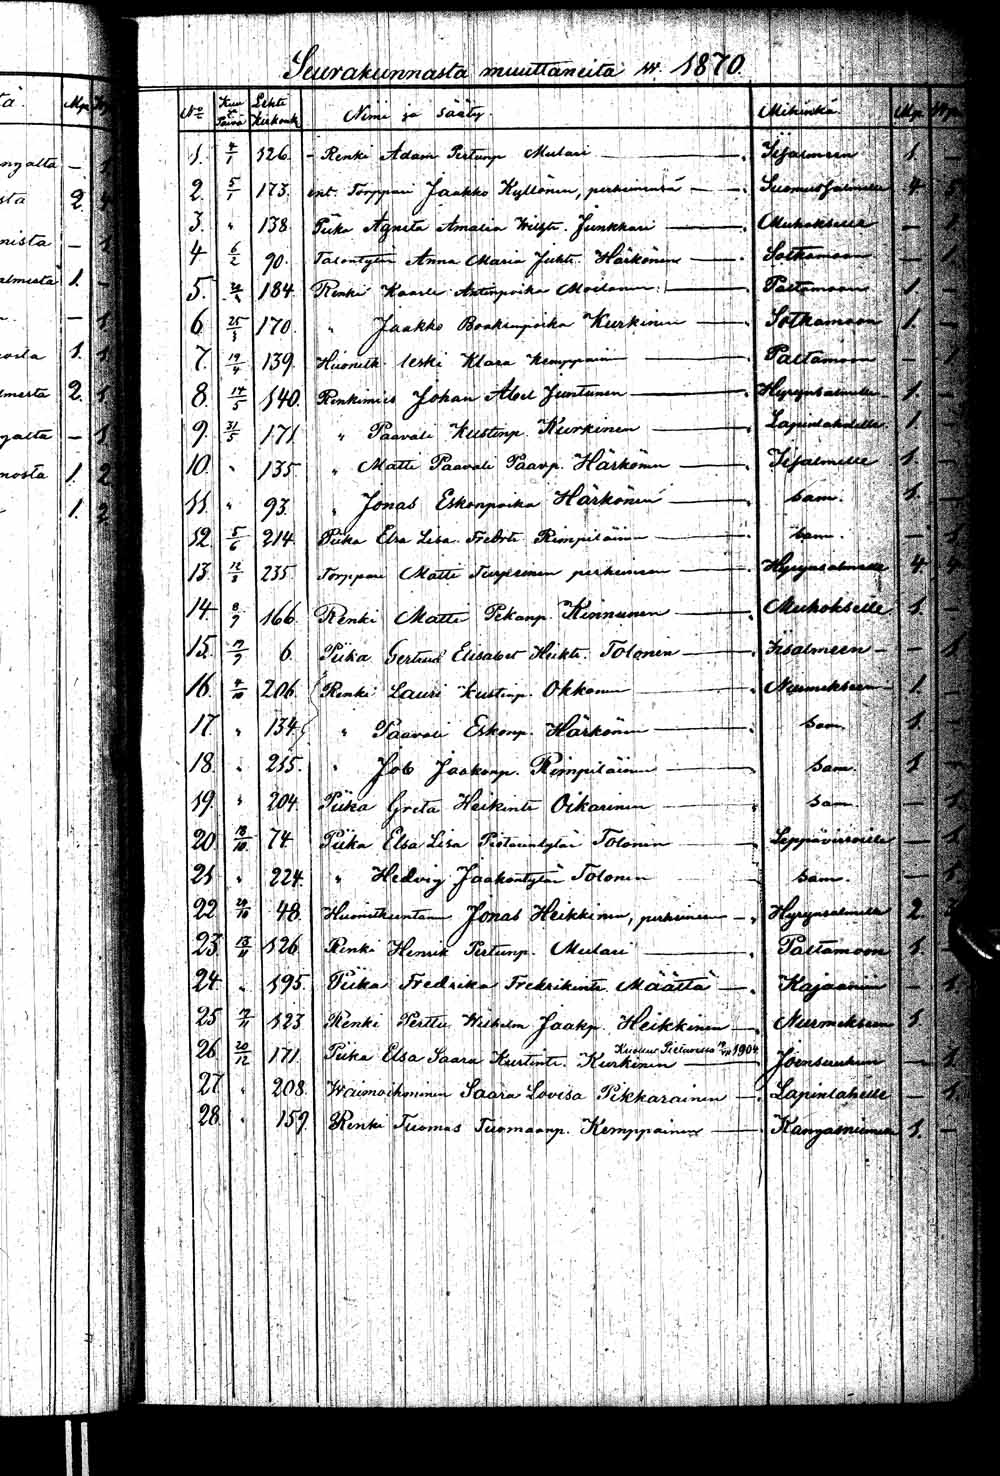 Seurakunnasta muuttaneita w. 1870.
No Kuu ja Päivä Lehti Kirkonk. Nimi ja sääty. Mihinkä. Mp. Wp.
1. 4/1 126. Renki Adam Perttunp. Mulari Iisalmeen 1. –
2. 5/1 173. ent. Torppari Jaakko Kyllönen, perheinensä Suomussalmelle 4. 5.
3. " 138. Piika Agneta Amalia Junkkari Muhokselle – 1.
4. 6/2 90. Talontytär Anna Maria Juht. Härkönen Sotkamoon – 1.
5. 184. Renki Kaarle Antinpoika Moilanen Paltamoon 1. –
6. 25/3 170. " Jaakko Kurkinen Sotkamoon 1. –
7. 19/4 139. Huoneth. leski Klara Kemppainen Paltamoon – 1.
8. 14/5 140. Renkimies Johan Abel Juntunen Hyrynsalmelle 1. –
9. 31/5 171. " Paavali Kustinp. Kurkinen Lapinlahdelle 1. –
10. " 135. " Matti Paavali Paavp. Härkönen Iisalmelle 1. –
11. " 93. " Jonas Eskonpoika Härkönen sam. 1. –
12. 5/6 214. Piika Elsa Lisa Fredrt. Rimpiläinen sam. – 1.
13. 235. Torppari Matti Turpeinen perheineen Hyrynsalmelle 4. 4.
14. 8/9 166. Renki Matti Pekanp. Kinnunen Muhokselle 1. –
15. 6. Piika Gertrud Elisabet Heikt. Tolonen Iisalmeen – 1.
16. 4/10 206. Renki Lauri Kustinp. Okkonen Nurmekseen 1. –
17. " 134. " Paavali Eskonp. Härkönen sam. 1. –
18. " 215. " Job Jaakonp. Rimpiläinen sam. 1. –
19. " 204. Piika Greta Heikint. Oikarinen sam. – 1.
20. 18/10 74. Piika Elsa Lisa Tolonen Leppävirroille – 1.
21. " 224. " Hedvig Jaakontytär Tolonen sam. – 1.
22. 29/10 48. Jonas Heikkinen, perheineen Hyrynsalmelle 2. 3.
23. 13/11 126. Renki Henrik Perttunp. Mulari Paltamoon 1. –
24. " 195. Piika Fredrika Fredrikint. Määttä Kajaaniin – 1.
25. 17/11 123. Renki Perttu Wilhelm Jaakp. Heikkinen Nurmekseen 1.
Kuollut Pietarissa 1904
26. 20/12 171. Piika Elsa Saara Kustint. Kurkinen Joensuuhun – 1.
27. " 208. Waimoihminen Saara Lovisa Pikkarainen Lapinlahelle – 1.
28. " 159. Renki Tuomas Tuomaanp. Kemppainen Kangasniemelle 1. –